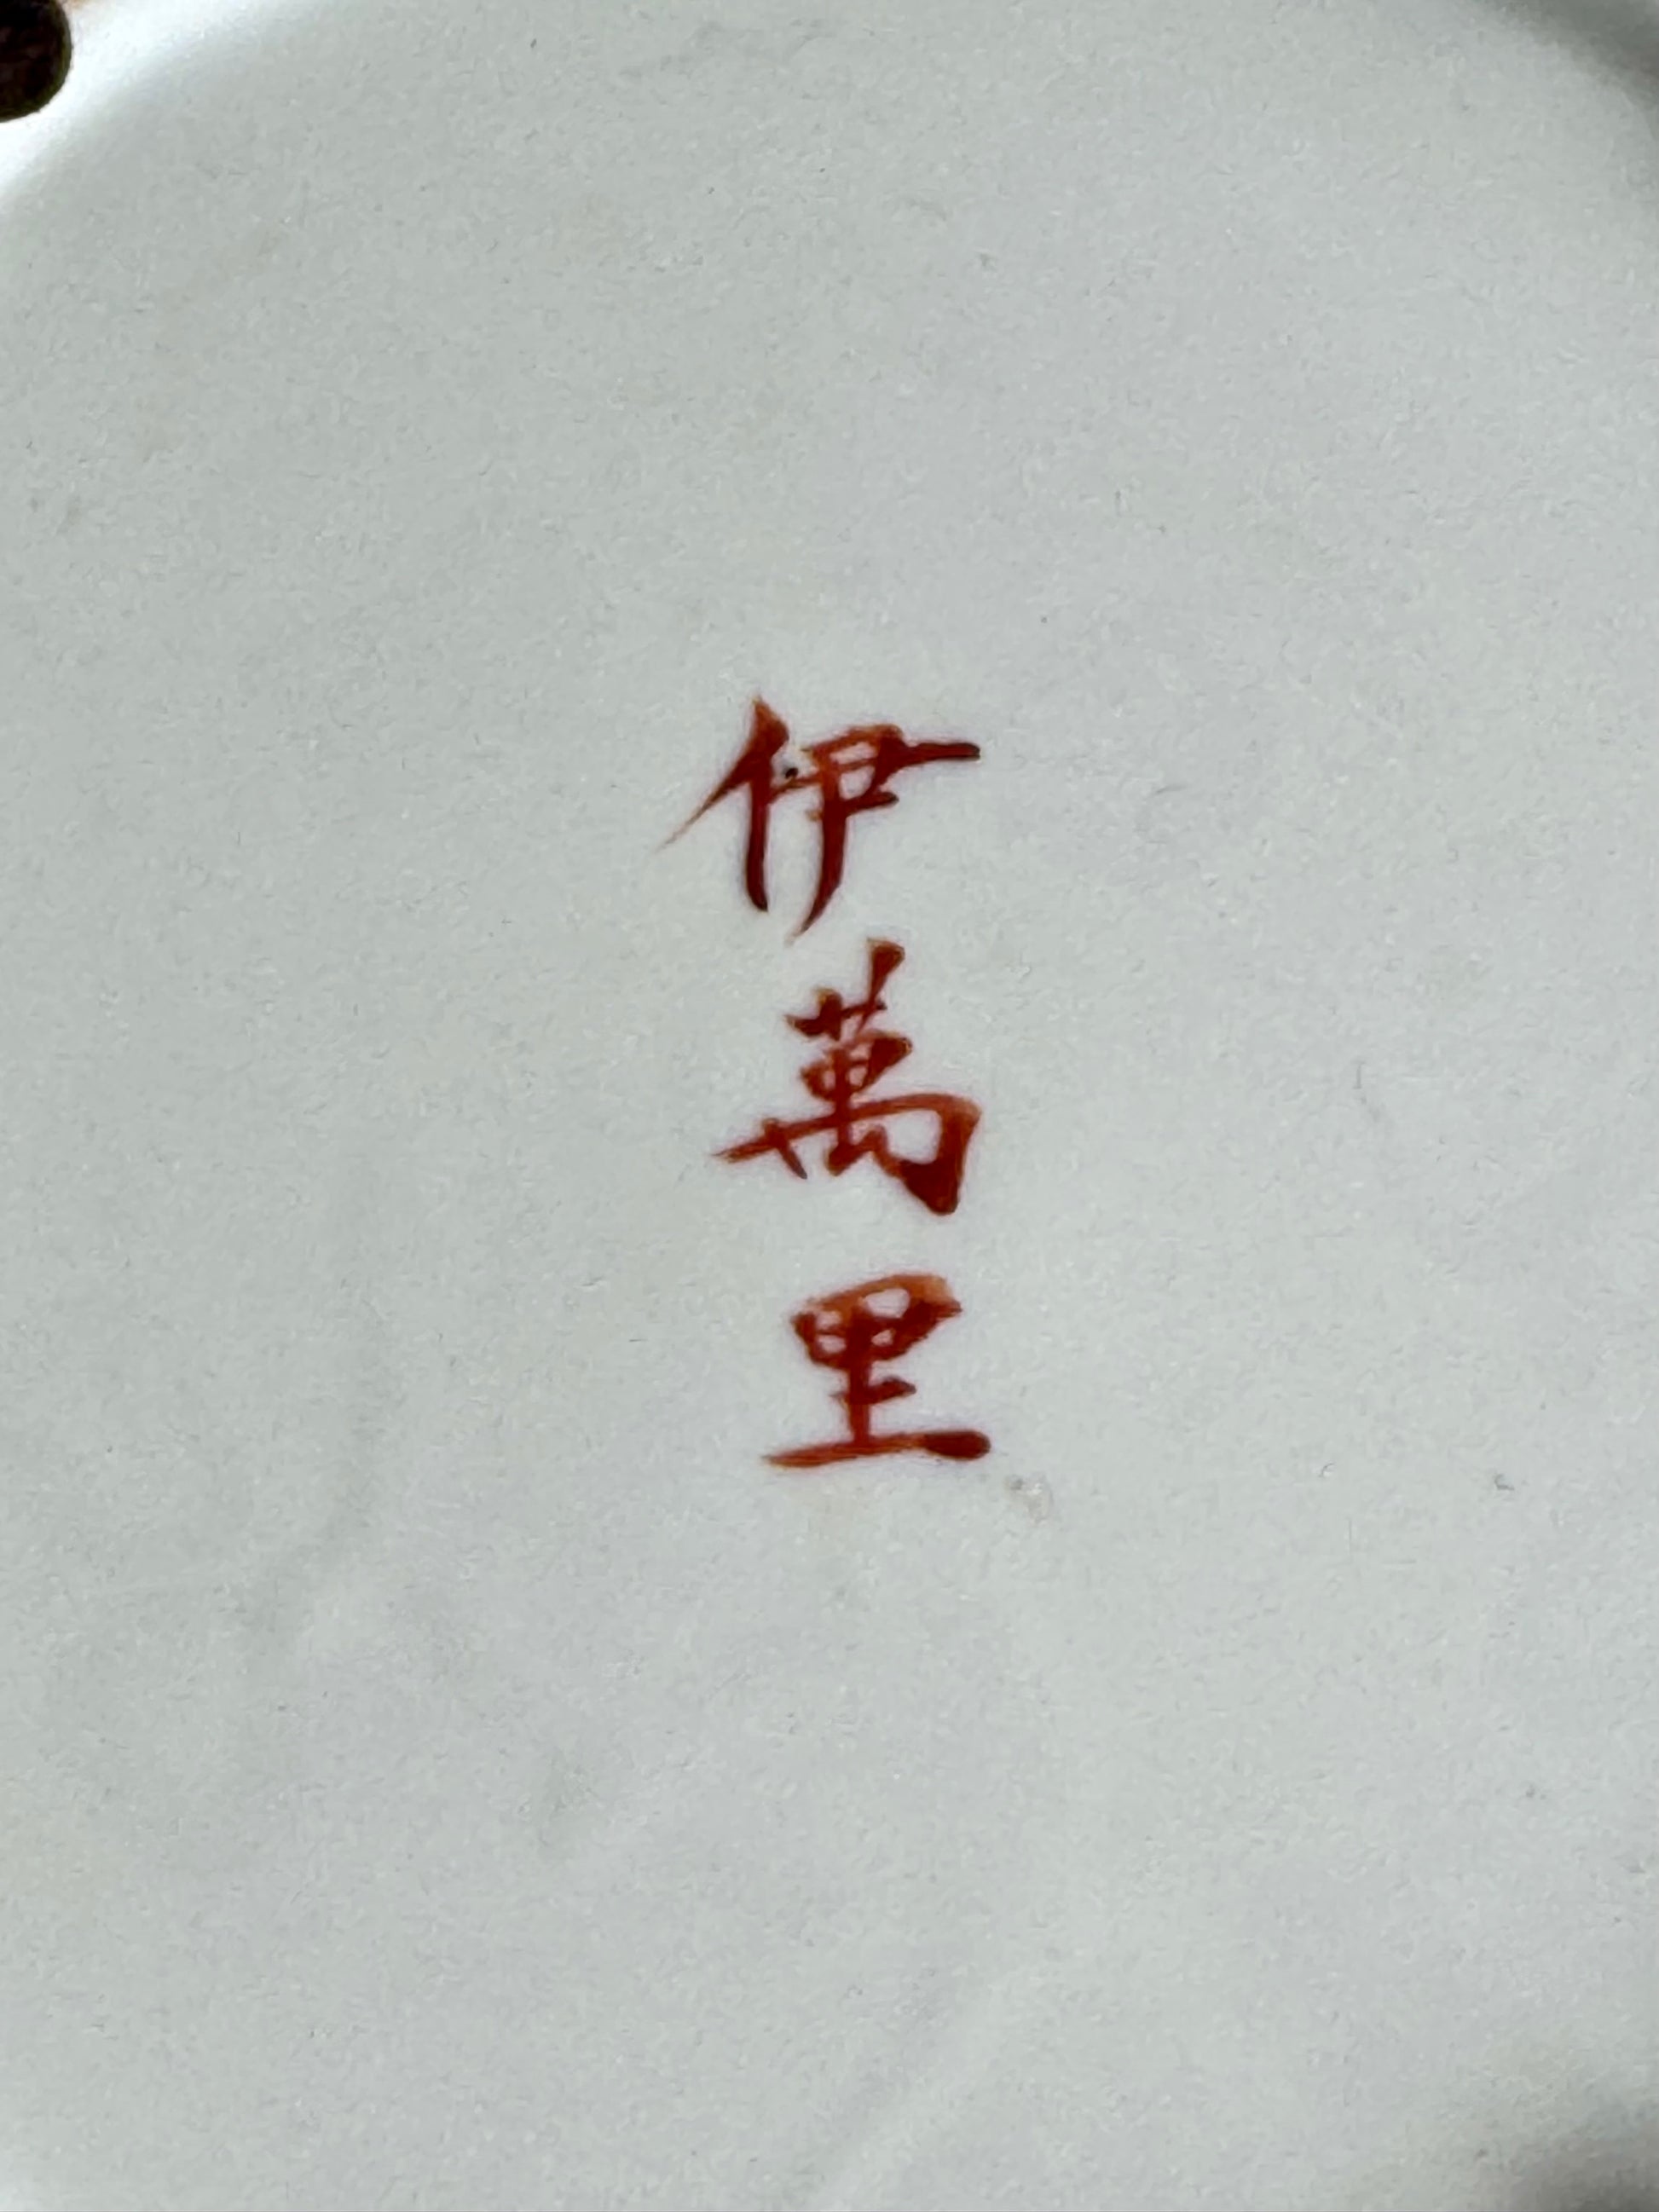 伊萬里